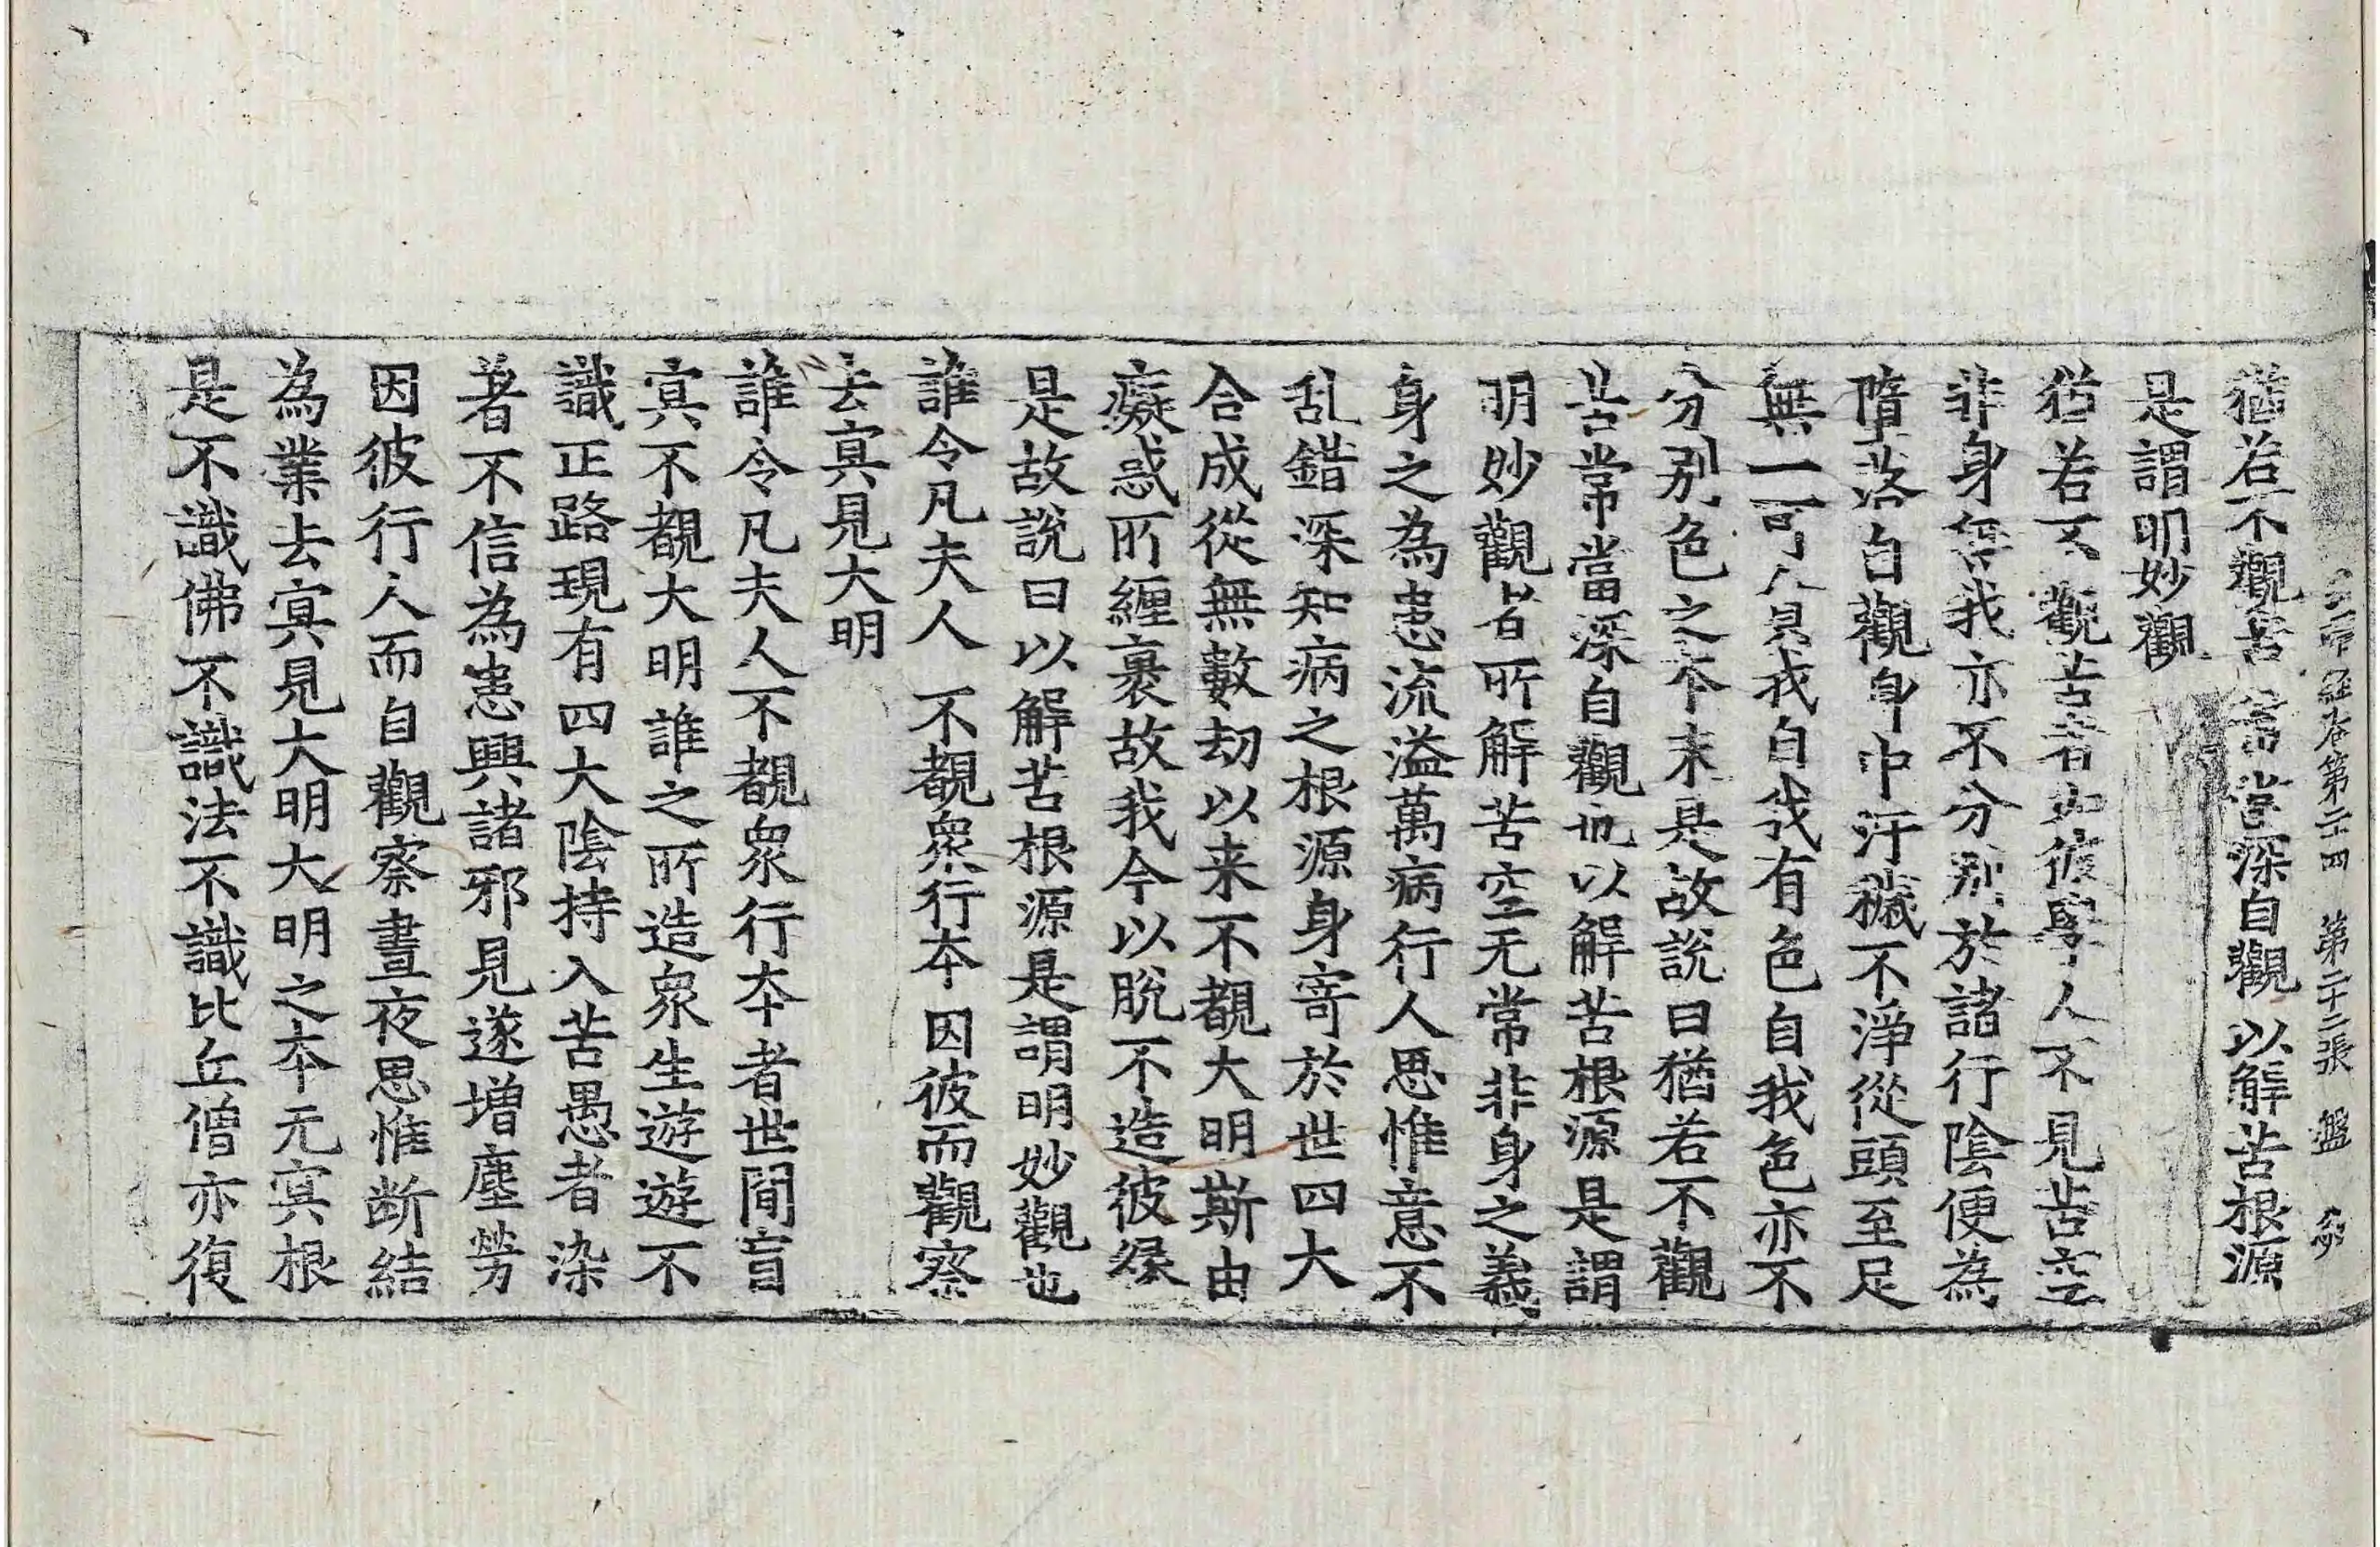 出曜經卷第二十四　第二十二張　盤
猶若不觀苦　常當深自觀　以解苦根源
是謂明妙觀
猶若不觀苦者如彼學人不見苦空
非身無我亦不分別於諸行陰便為
墮落自觀身中汙穢不淨從頭至足
無一可貪我自我有色自我色亦不
分別色之本末是故說曰猶若不觀
苦常當深自觀也以解苦根源是謂
明妙觀者所解苦空无常非身之義
身之為患流溢萬病行人思惟意不
乱錯深知病之根源身寄於世四大
合成從無數劫以来不覩大明斯由
癡惑所纏裹故我今以脫不造彼緣
是故說曰以解苦根源是謂明妙觀也
誰令凡夫人　不覩衆行本　因彼而觀察
去寘見大明
誰令凡夫人不覩衆行本者世間盲
寘不覩大明誰之所造衆生遊遊不
識正路現有四大陰持入苦愚者染
著不信為患興諸邪見遂增塵勞
因彼行人而自觀察晝夜思惟断結
為業去寘見大明大明之本无寘根
是不識佛不識法不識比丘僧亦復